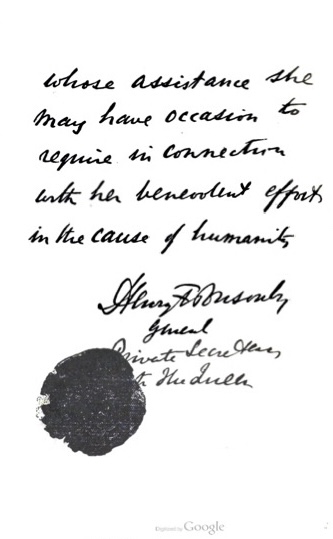 whose assistance she
may have occasion to
require in connection
with her benevolent efforts
in the cause of humanity
Henry F Ponsonby
General
Private Secretary
to The Queen
Digitized by Google